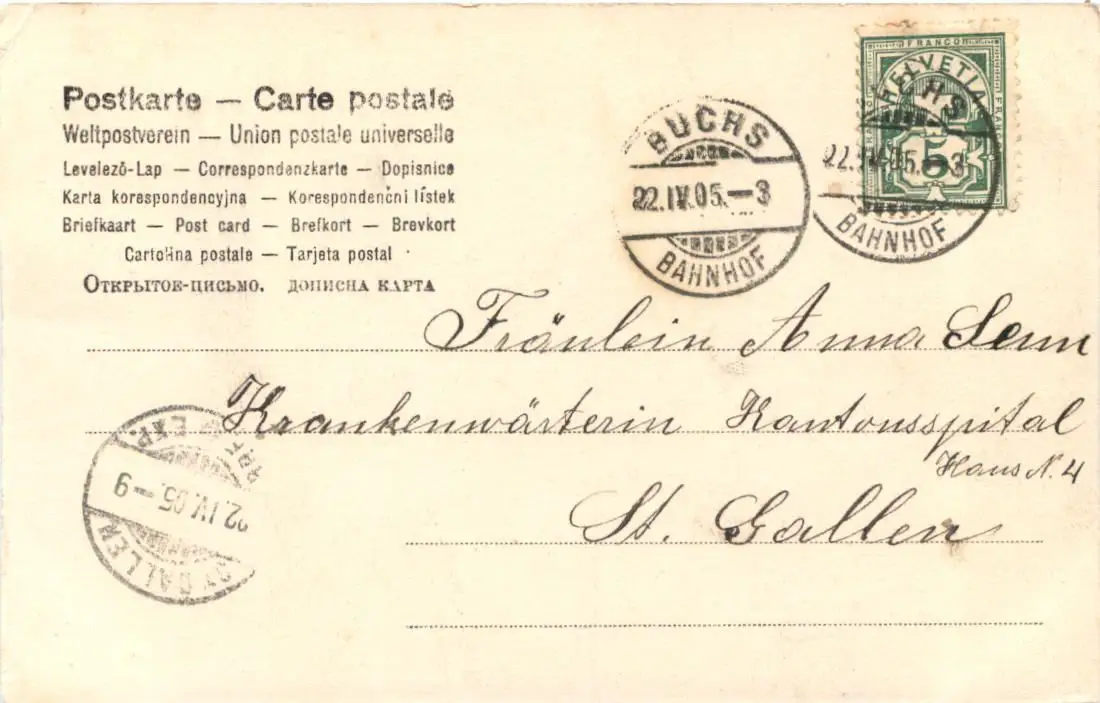 Postkarte — Carte postale
Weltpostverein — Union postale universelle
Levelező-Lap — Correspondenzkarte — Dopisnice
Karta korespondencyjna — Korespondenční lístek
Briefkaart — Post card — Brefkort — Brevkort
Cartolina postale — Tarjeta postal
Открытое-письмо. дописна карта
BUCHS
22.IV.05.–3
BAHNHOF
FRANCO
HELVETIA
5
22.IV.05.–3
BAHNHOF
Fräulein Anna Senn
Krankenwärterin Kantonsspital
Haus N. 4
St. Gallen
ST. GALLEN
22.IV.05.–9
EXP.